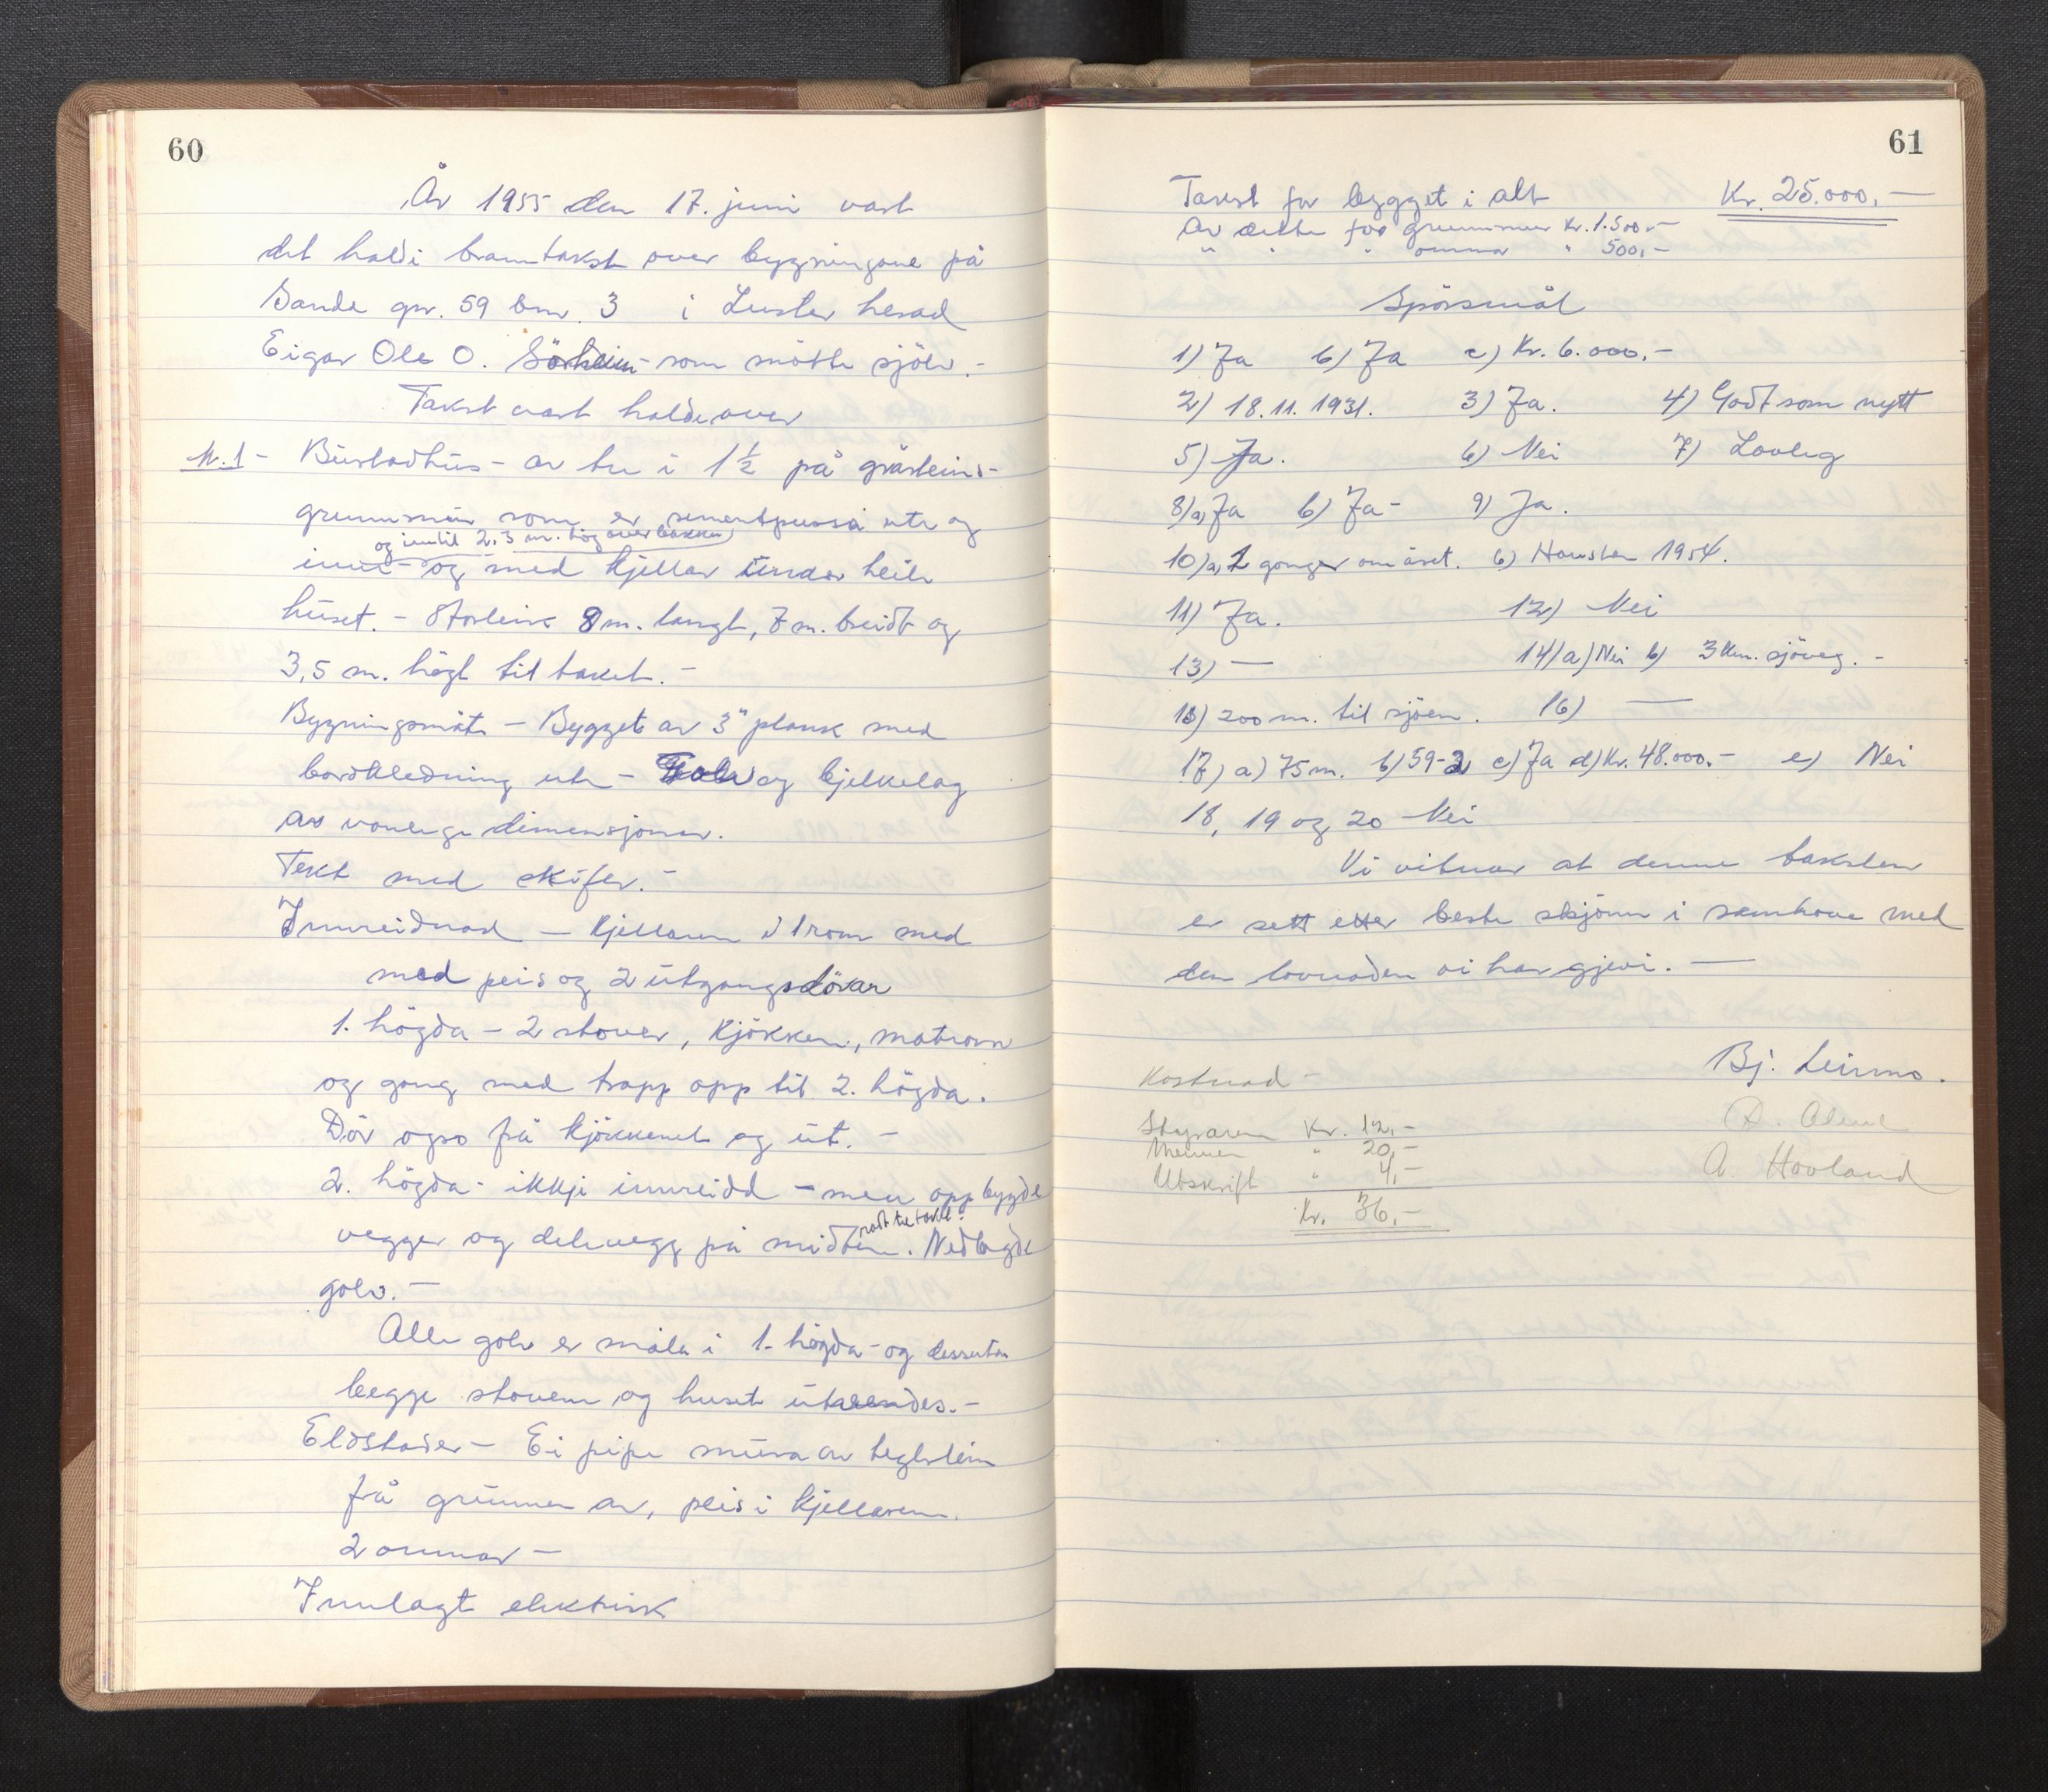 60
År 1955 den 17. juni vart
det haldi branntakst over bygningane på
Sande gnr. 59 bnr. 3 i Luster herad
Eigar Ole O. Sörheim - som mötte sjölv. -
Takst vart halde over
Nr. 1 - Bustadhus - av tre i 1 1/2 på gråsteins-
grunnmur som er sementpussa ute og
og inntil 2,3 m. hög over bakken
inne - og med kjellar under heile
huset. - Storleik 8 m. langt, 7 m. breidt og
3,5 m. högt til taket. -
Bygningsmåte - Bygget av 3" plank med
bordkledning ute - Golv og bjelkelag
av vanlege dimensjonar.
Tekt med skifer. -
Innreidnad - Kjellaren i 1 rom med
med peis og 2 utgangsdörar
1. högda - 2 stover, kjökken, matrom
og gang med trapp opp til 2. högda.
Dör ogso frå kjökkenet og ut. -
2. högda - ikkji innreidd - men oppbygde
rodt til taket.
vegger og delevegg på midten. Nedlagde
golv. -
Alle golv er måla i 1. högda - og dessutan
begge stovene og huset utvendes. -
Eldstader - Ei pipe mura av teglstein
frå grunnen av, peis i kjellaren.
2 omnar -
Innlagt elektrisk
61
Takst for bygget i alt Kr. 25.000,-
Av dette for grunnmur Kr. 1.500,-
" " " omnar " 500,-
Spörsmål
1) Ja b) Ja c) Kr. 6.000,-
2) 18.11.1931. 3) Ja. 4) Godt som nytt
5) Ja. 6) Nei 7) Lovleg
8) a) Ja b) Ja - 9) Ja.
10) a) 2 gonger om året. b) Hausten 1954.
11) Ja. 12) Nei
13) — 14) a) Nei b) 3 km. sjöveg. -
15) 200 m. til sjöen. 16) —
17) a) 75 m. b) 59-2 c) Ja d) Kr. 48.000,- e) Nei
18, 19 og 20 Nei
Vi vitnar at denne taksten
er sett etter beste skjönn i samhove med
den lovnaden vi har gjevi. —
Bj. Leirmo.
A. Hovland
Kostnad -
Styraren Kr. 12,-
Mennen " 20,-
Utskrift " 4,-
Kr. 36,-